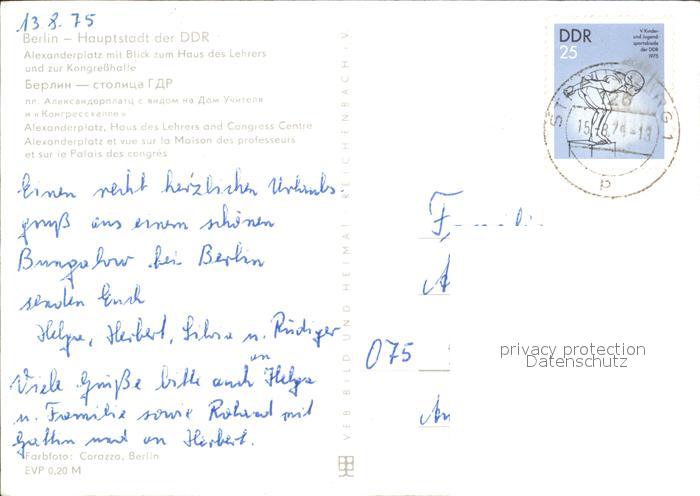 13.8.75
Berlin – Hauptstadt der DDR
Alexanderplatz mit Blick zum Haus des Lehrers
und zur Kongreßhalle
Берлин — столица ГДР
пл. Александерплатц с видом на Дом Учителя
и «Конгрессхалле»
Alexanderplatz, Haus des Lehrers and Congress Centre
Alexanderplatz et vue sur la Maison des professeurs
et sur le Palais des congrès
Einen recht herzlichen Urlaubs-
gruß aus einem schönen
Bungalow bei Berlin
senden Euch
Helga, Herbert, Silvia u. Rüdiger
Viele Grüße bitte auch an Helga
u. Familie sowie Roland mit
Gattin und an Herbert.
Farbfoto: Corazza, Berlin
EVP 0,20 M
VEB BILD UND HEIMAT REICHENBACH · V
DDR
25
V. Kinder-
und Jugend-
spartakiade
der DDR
1975
Familie
075
privacy protection
Datenschutz